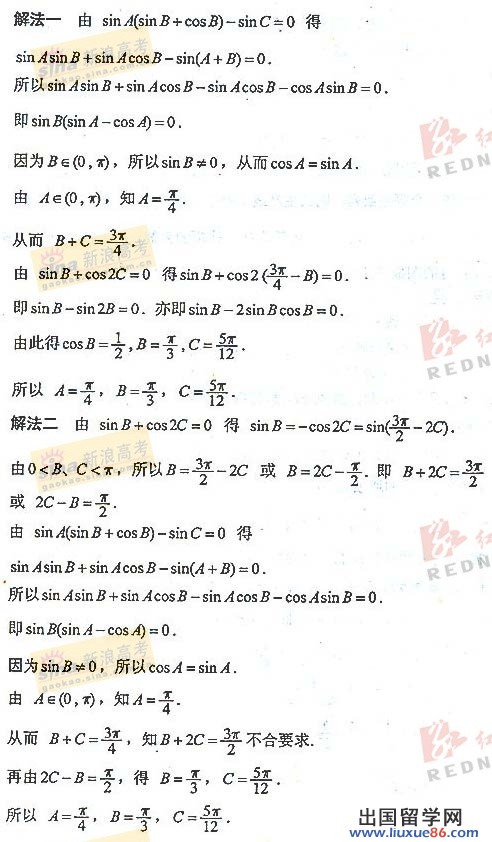 解法一 由 sin A(sin B + cos B) − sin C = 0 得
sin A sin B + sin A cos B − sin(A + B) = 0.
所以 sin A sin B + sin A cos B − sin A cos B − cos A sin B = 0.
即 sin B(sin A − cos A) = 0.
因为 B∈(0, π), 所以 sin B ≠ 0, 从而 cos A = sin A.
由 A∈(0, π), 知 A = π/4.
从而 B + C = 3π/4.
由 sin B + cos 2C = 0 得 sin B + cos 2(3π/4 − B) = 0.
即 sin B − sin 2B = 0. 亦即 sin B − 2 sin B cos B = 0.
由此得 cos B = 1/2, B = π/3, C = 5π/12.
所以 A = π/4, B = π/3, C = 5π/12.
解法二 由 sin B + cos 2C = 0 得 sin B = −cos 2C = sin(3π/2 − 2C).
由 0 < B、C < π, 所以 B = 3π/2 − 2C 或 B = 2C − π/2. 即 B + 2C = 3π/2
或 2C − B = π/2.
由 sin A(sin B + cos B) − sin C = 0 得
sin A sin B + sin A cos B − sin(A + B) = 0.
所以 sin A sin B + sin A cos B − sin A cos B − cos A sin B = 0.
即 sin B(sin A − cos A) = 0.
因为 sin B ≠ 0, 所以 cos A = sin A.
由 A∈(0, π), 知 A = π/4.
从而 B + C = 3π/4, 知 B + 2C = 3π/2 不合要求.
再由 2C − B = π/2, 得 B = π/3, C = 5π/12.
所以 A = π/4, B = π/3, C = 5π/12.
新浪高考
gaokao.sina
红
REDN
出国留学网
www.liuxue86.com